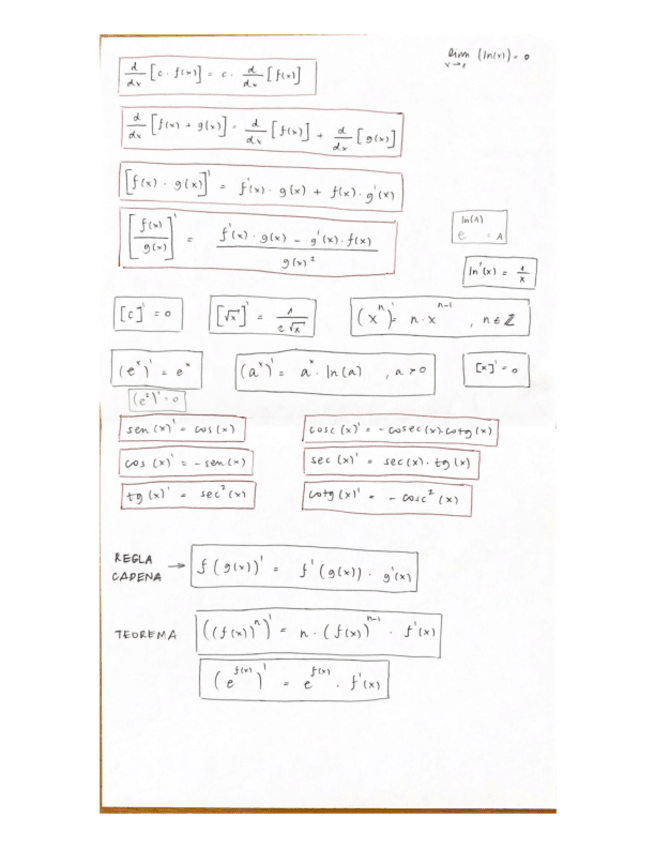 lim (ln(x)) = 0
x→1
d/dx [c · f(x)] = c · d/dx [f(x)]
d/dx [f(x) + g(x)] = d/dx [f(x)] + d/dx [g(x)]
[f(x) · g(x)]' = f'(x) · g(x) + f(x) · g'(x)
[f(x)/g(x)]' = (f'(x) · g(x) - g'(x) · f(x)) / g(x)²
e^ln(A) = A
ln'(x) = 1/x
[c]' = 0
[√x]' = 1/(2√x)
(x^n)' = n · x^(n-1) , n ∈ ℤ
(e^x)' = e^x
(a^x)' = a^x · ln(a) , a > 0
[x]' = 0
(e²)' = 0
sen(x)' = cos(x)
cosc(x)' = - cosec(x) · cotg(x)
cos(x)' = - sen(x)
sec(x)' = sec(x) · tg(x)
tg(x)' = sec²(x)
cotg(x)' = - cosc²(x)
REGLA
CADENA → f(g(x))' = f'(g(x)) · g'(x)
TEOREMA ((f(x))^n)' = n · (f(x))^(n-1) · f'(x)
(e^f(x))' = e^f(x) · f'(x)